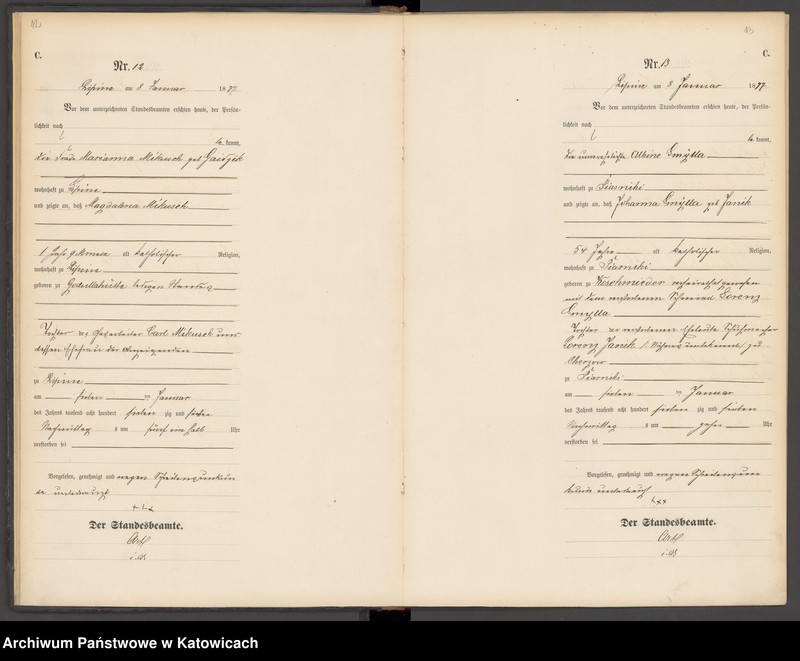 12
C.
Nr. 12
Lipine am 8 Januar 1877
Vor dem unterzeichneten Standesbeamten erschien heute, der Persön-
lichkeit nach
be kannt,
die Frau Marianna Mikusch geb
wohnhaft zu Lipine
und zeigte an, daß Magdalena Mikusch
1 Jahr 9 Monate alt katholischer Religion,
wohnhaft zu Lipine
geboren zu Godullahütte
Tochter des Carl Mikusch und
dessen Ehefrau der Anzeigenden
zu Lipine
am sieben ten Januar
des Jahres tausend acht hundert sieben zig und sieben
Nachmittag s um fünf ein halb Uhr
verstorben sei
Vorgelesen, genehmigt und wegen Schreibensunkun
de unterkreuzt
+++
Der Standesbeamte.
13
C.
Nr. 13
Lipine am 8 Januar 1877
Vor dem unterzeichneten Standesbeamten erschien heute, der Persön-
lichkeit nach
be kannt,
die unverehelichte Albine Gmylla
wohnhaft zu Piasniki
und zeigte an, daß Johanna Gmylla geb Janik
54 Jahre alt katholischer Religion,
wohnhaft zu Piasniki
geboren zu verheirathet gewesen
mit dem verstorbenen Lorenz
Gmylla
Tochter der verstorbenen Eheleute
Lorenz Janik zu
Chorzow
zu Piasniki
am sieben ten Januar
des Jahres tausend acht hundert sieben zig und sieben
Nachmittag s um Uhr
verstorben sei
Vorgelesen, genehmigt und wegen Schreibensun
kunde unterkreuzt
+++
Der Standesbeamte.
Archiwum Państwowe w Katowicach